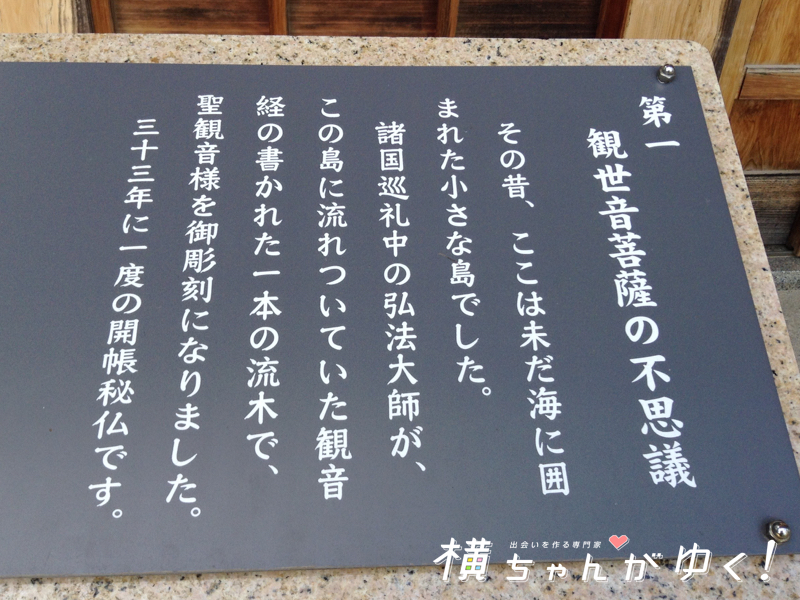 第一
観世音菩薩の不思議
その昔、ここは未だ海に囲
まれた小さな島でした。
諸国巡礼中の弘法大師が、
この島に流れついていた観音
経の書かれた一本の流木で、
聖観音様を御彫刻になりました。
三十三年に一度の開帳秘仏です。
出会いを作る専門家
横ちゃんがゆく!